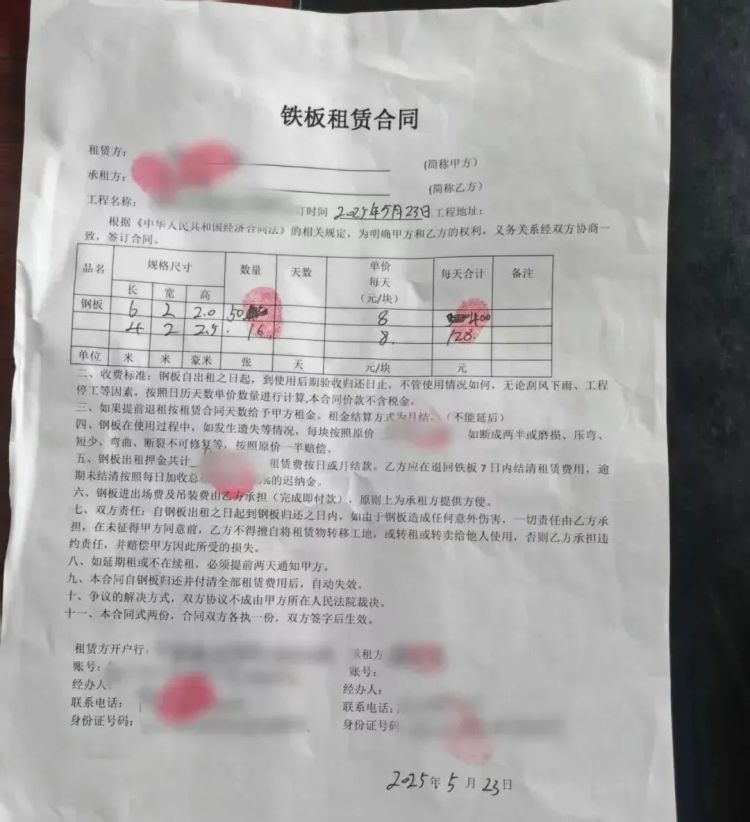 铁板租赁合同
租赁方： (简称甲方)
承租方： (简称乙方)
工程名称： 订时间 2025年5月23日 工程地址：
根据《中华人民共和国经济合同法》的相关规定，为明确甲方和乙方的权利，义务关系经双方协商一
致，签订合同。
品名 规格尺寸 数量 天数 单价 每天 (元/块) 每天合计 备注
长 宽 高
钢板 6 2 2.0 50 8 400
4 2 2.5 16 8 128
单位 米 米 豪米 张 天 元/块 元
二、收费标准：钢板自出租之日起，到使用后期验收归还日止，不管使用情况如何，无论刮风下雨、工程
停工等因素，按照日历天数单价数量进行计算,本合同价款不含税金。
三、如果提前退租按租赁合同天数给予甲方租金。租金结算方式为月结。（不能延后）
四、钢板在使用过程中，如发生遗失等情况，每块按照原价 如断成两半或磨损、压弯、
短少、弯曲、断裂不可修复等，按照原价一半赔偿。
五、钢板出租押金共计 租赁费按日或月结款。乙方应在退回铁板7日内结清租赁费用，逾
期未结清按照每日加收总 %的迟纳金。
六、钢板进出场费及吊装费由乙方承担（完成即付款）、原则上为承租方提供方便。
七、双方责任：自钢板出租之日起到钢板归还之日内，如由于钢板造成任何意外伤害，一切责任由乙方承
担，在未征得甲方同意前，乙方不得擅自将租赁物转移工地，或转租或转卖给他人使用，否则乙方承担违
约责任，并赔偿甲方因此所受的损失。
八、如延期租或不在续租，必须提前两天通知甲方。
九、本合同自钢板归还并付清全部租赁费用后，自动失效。
十、争议的解决方式，双方协议不成由甲方所在人民法院裁决。
十一、本合同式两份，合同双方各执一份，双方签字后生效。
租赁方开户行： 承租方
账号： 账号：
经办人： 经办人：
联系电话： 联系电话：
身份证号码： 身份证号码
2025年5月23日